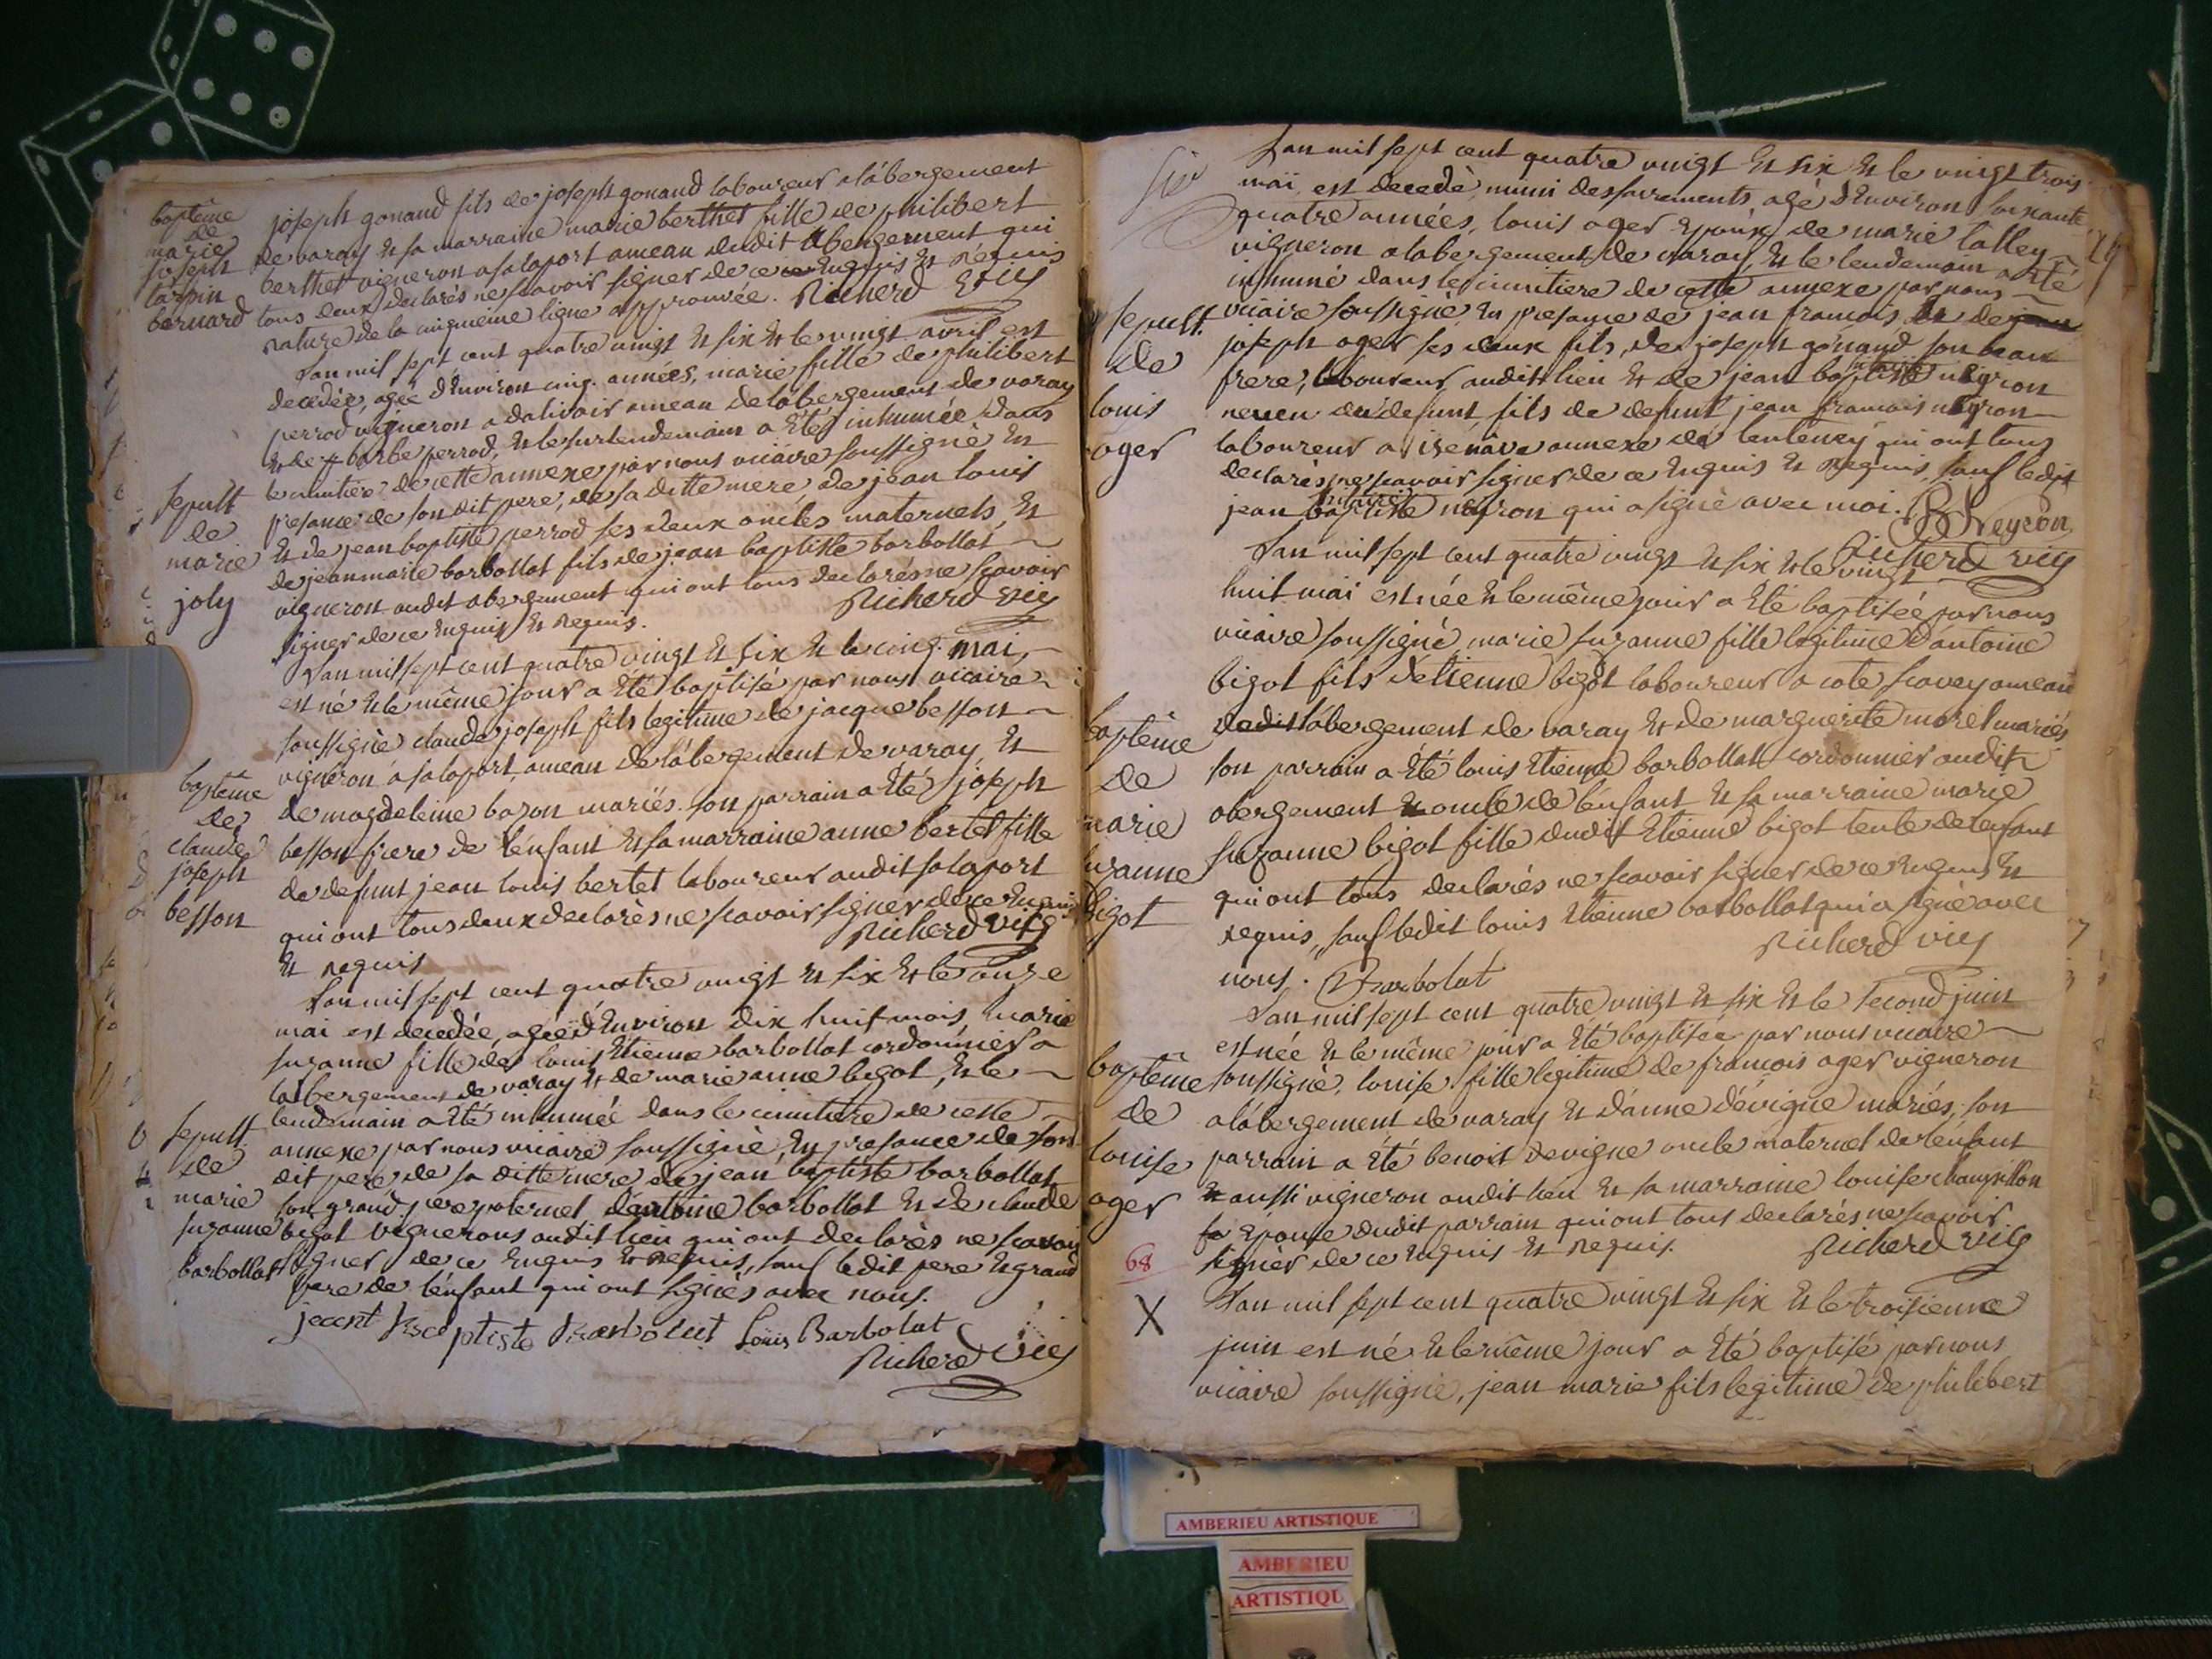 baptême
de
marie
joseph
tarpin
bernard
joseph gonand fils de joseph gonand laboureur a lábergement
de varay et sa marraine marie berthet fille de philibert
berthet vigneron a salaport ameau dudit abergement qui
tous deux declarés ne scavoir signer de ce enquis et réquis
rature de la cinquieme ligne approuvée. Richerd vic
Lan mil sept cent quatre vingt et six et le vingt avril est
decedée, agée d'environ cinq années, marie fille de philibert
perrod vigneron a dalivoir ameau de labergement de varay
et de barbe perrod, et le surlendemain a été inhumée dans
le cimitiere de cette annexe par nous vicaire soussigné en
presance de son dit pere, de sa ditte mere de jean louis
et de jean baptiste perrod ses deux oncles maternels et
de jean marie barbollat fils de jean baptiste barbollat
vigneron audit abergement qui ont tous declarés ne scavoir
signer de ce enquis et requis. Richerd vic
sepult
de
marie
joly
Lan mil sept cent quatre vingt et six et le cinq mai,
est né et le même jour a été baptisé par nous vicaire
soussigné claude joseph fils legitime de jacque besson
vigneron a salaport, ameau de lábergement de varay et
de magdeleine bozon mariés. son parrain a été joseph
besson frere de l'enfant et sa marraine anne bertet fille
de defunt jean louis bertet laboureur audit salaport
qui ont tous deux declarés ne scavoir signer de ce enquis
et requis Richerd vic
baptême
de
claude
joseph
besson
Lan mil sept cent quatre vingt et six et le onze
mai est decedée, agée d'environ dix huit mois marie
suzanne fille de louis etienne barbollat cordonnier a
labergement de varay et de marie anne bigot, et le
lendemain a été inhumée dans le cimitiere de cette
annexe par nous vicaire soussigné, en presance de son
dit pere de sa ditte mere de jean baptiste barbollat
son grand pere paternel d'antoine barbollat et de claude
bigot vignerons audit lieu qui ont declarés ne scavoir
signer de ce enquis et requis, sauf ledit pere et grand
pere de l'enfant qui ont signés avec nous.
Louis Barbolat
Richerd vic
sepult
de
marie
suzanne
barbollat
Lan mil sept cent quatre vingt et six et le vingt trois
maï, est decedé, muni des sacrements, agé d'environ soixante
quatre années, louis oger epoux de marie lalley
vigneron a labergement de varay, et le lendemain a été
inhumé dans le cimitiere de cette annexe par nous
vicaire soussigné, en presance de jean francois, et de jean
joseph oger ses deux fils, de joseph gonand son beau
frere, laboureur audit lieu et de jean baptiste neyron
neveu du defunt fils de defunt jean francois neyron
laboureur a isenave annexe de lentenay qui ont tous
declarés ne scavoir signer de ce enquis et requis, sauf ledit
jean baptiste neyron qui a signé avec moi. B Neyron
Richerd vic
sepult.
de
louis
oger
Lan mil sept cent quatre vingt et six et le vingt
huit mai est née et le même jour a été baptisée par nous
vicaire soussigné, marie suzanne fille legitime d'antoine
bigot fils d'etienne bigot laboureur a cote savey ameau
dudit labergement de varay et de marguerite morel mariés
son parrain a été louis etienne barbollat cordonnier audit
abergement et oncle de l'enfant et sa marraine marie
suzanne bigot fille dudit etienne bigot tente de lenfant
qui ont tous declarés ne scavoir signer de ce enquis et
requis, sauf ledit louis etienne barbollat qui a signé avec
nous. Barbolat Richerd vic
baptême
de
marie
suzanne
bigot
Lan mil sept cent quatre vingt et six et le second juin
est née et le même jour a été baptisée par nous vicaire
soussigné, louise fille legitime de francois oger vigneron
a lábergement de varay et d'anne dévigne mariés, son
parrain a été benoit devigne oncle maternel de l'enfant
et aussi vigneron audit lieu et sa marraine louise champillon
sa epouse dudit parrain qui ont tous declarés ne scavoir
signer de ce enquis et requis. Richerd vic
baptême
de
louise
oger
68
X
Lan mil sept cent quatre vingt et six et le troisieme
juin est né et le même jour a été baptisé par nous
vicaire soussigné, jean marie fils legitime de philibert
AMBERIEU ARTISTIQUE
AMBERIEU
ARTISTIQU